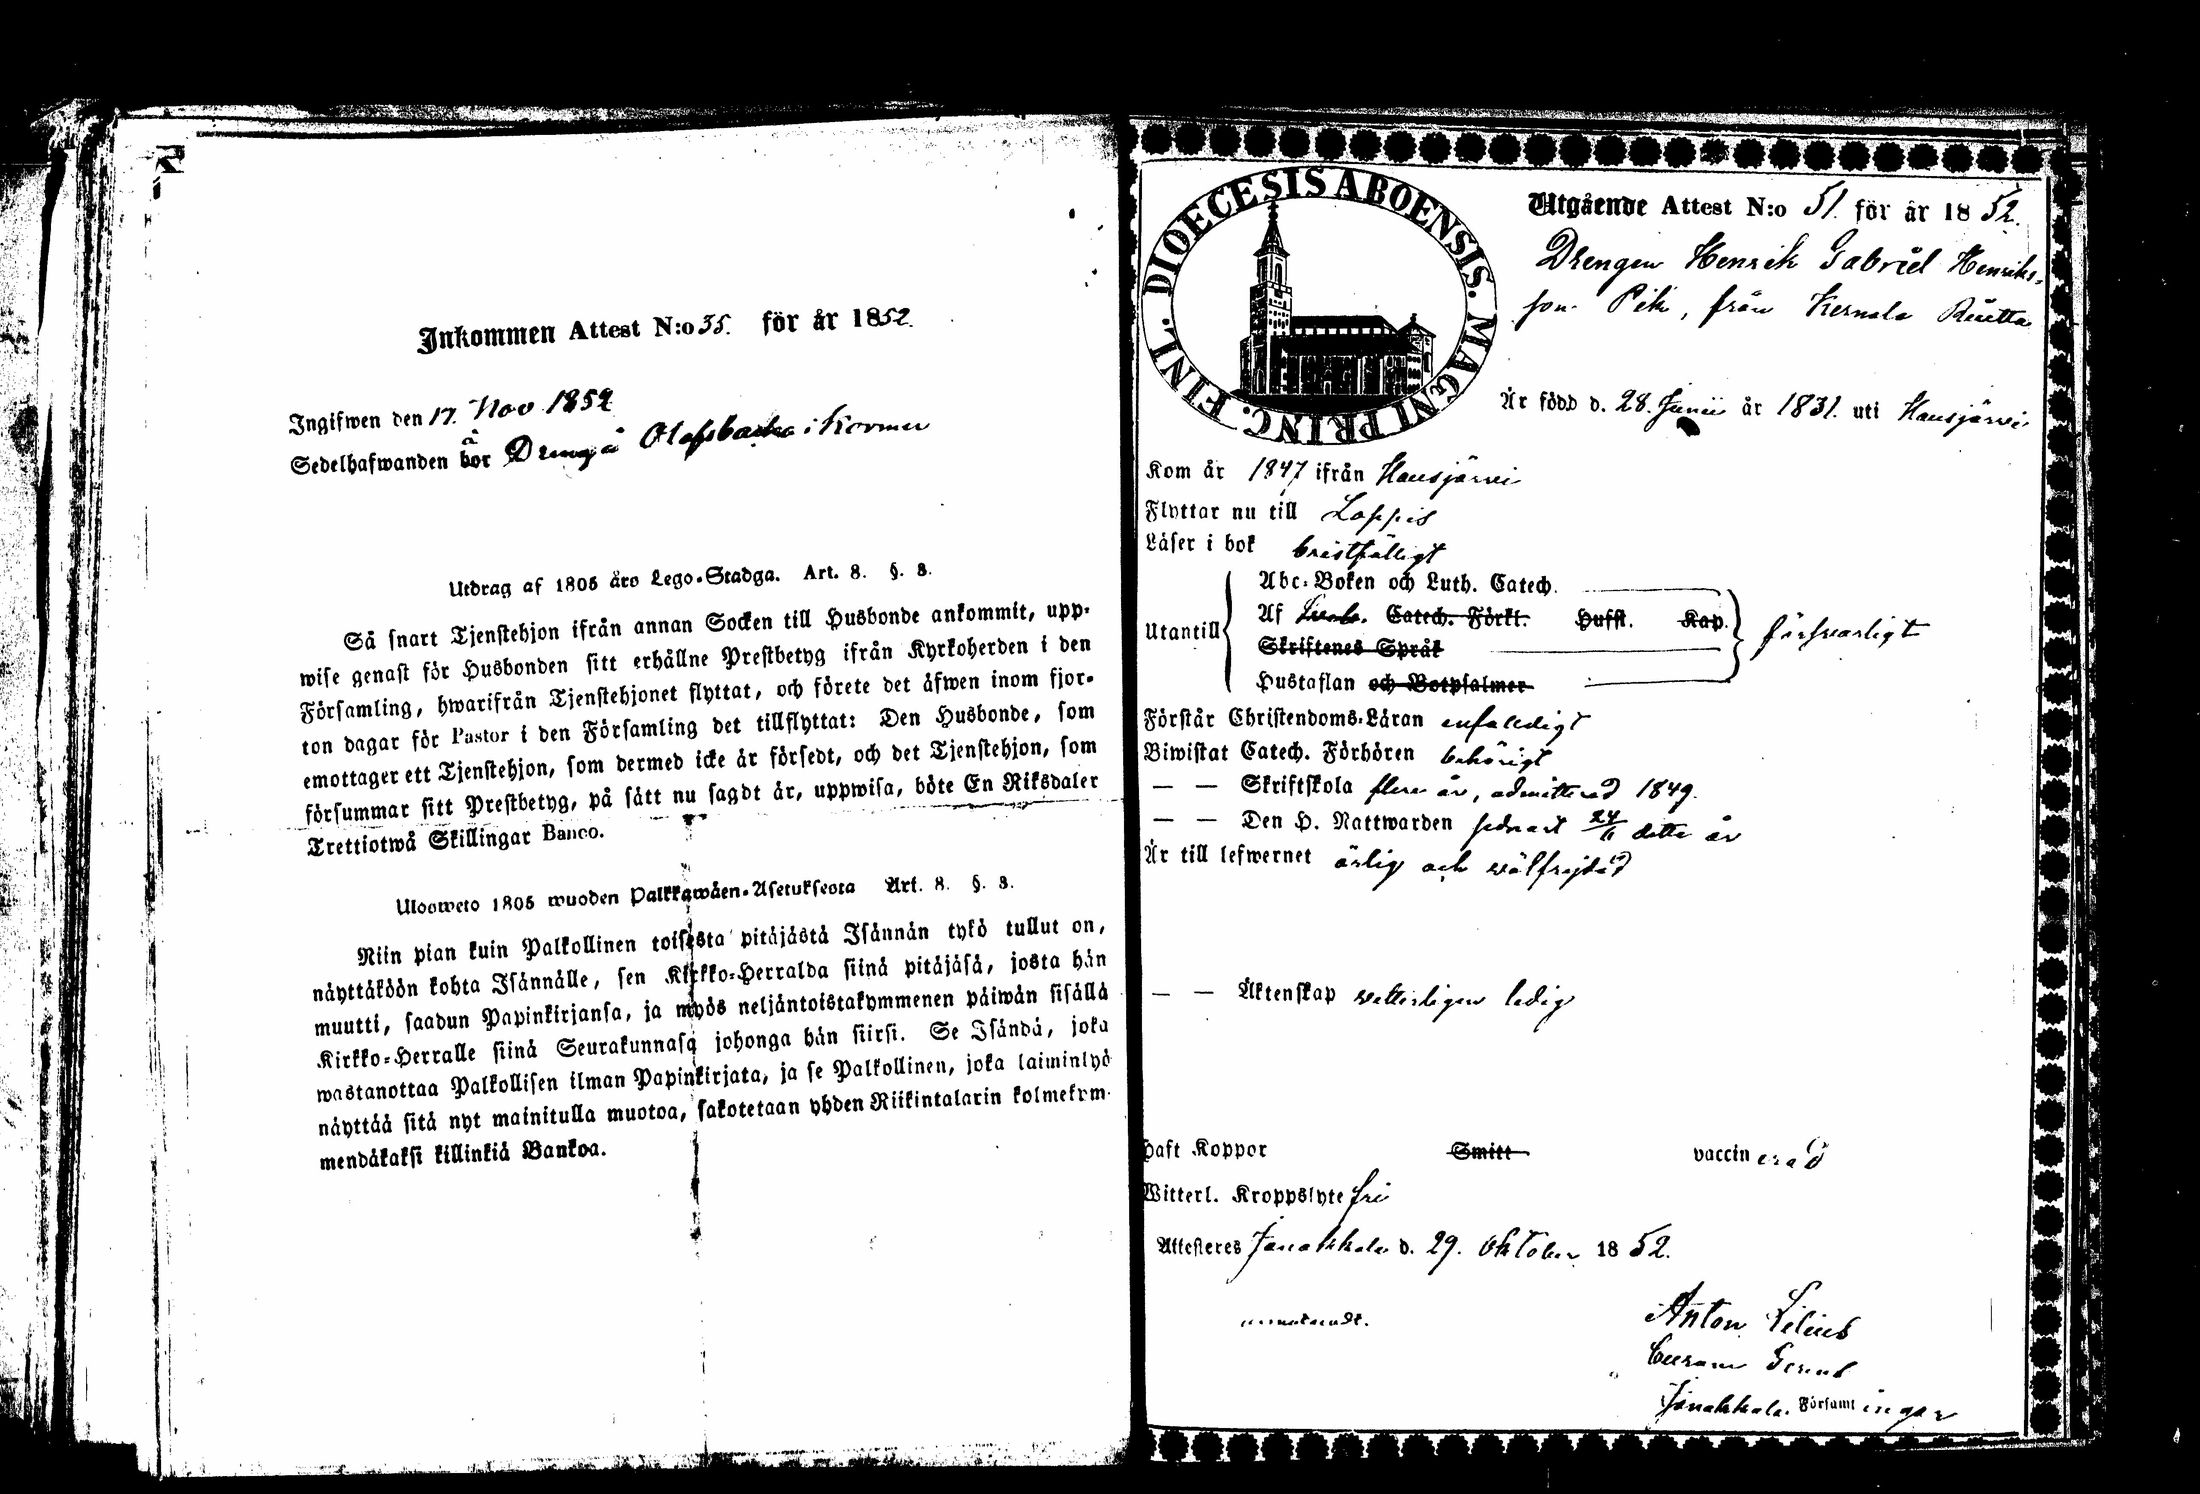 Inkommen Attest N:o 35. för år 1852.
Ingifwen den 17. Nov 1852
å
Sedelhafwanden bor Dreng å i Kormu
Utdrag af 1805 års Lego-Stadga. Art. 8. §. 3.
Så snart Tjenstehjon ifrån annan Socken till Husbonde ankommit, upp-
wise genast för Husbonden sitt erhållne Prestbetyg ifrån Kyrkoherden i den
Församling, hwarifrån Tjenstehjonet flyttat, och förete det äfwen inom fjor-
ton dagar för Pastor i den Församling det tillflyttat: Den Husbonde, som
emottager ett Tjenstehjon, som dermed icke är försedt, och det Tjenstehjon, som
försummar sitt Prestbetyg, på sätt nu sagdt är, uppwisa, böte En Riksdaler
Trettiotwå Skillingar Banco.
Ulosweto 1805 wuoden Palkkawäen-Asetuksesta Art. 8. §. 3.
Niin pian kuin Palkollinen toisesta pitäjästä Isännän tykö tullut on,
näyttäköön kohta Isännälle, sen Kirkko-Herralda siinä pitäjäsä, josta hän
muutti, saadun Papinkirjansa, ja myös neljäntoistakymmenen päiwän sisällä
Kirkko-Herralle siinä Seurakunnasa johonga hän siirsi. Se Isändä, joka
wastanottaa Palkollisen ilman Papinkirjata, ja se Palkollinen, joka laiminlyö
näyttää sitä nyt mainitulla muotoa, sakotetaan yhden Riikintalarin kolmekym-
mendäkaksi killinkiä Bankoa.
DIOECESIS ABOENSIS. MAGNI PRINC. FINL.
Utgående Attest N:o 51. för år 1852.
Drengen Henrik Gabriel Henriks-
son Pik, från Kernala
Är född d. 28. Junii år 1831. uti Hausjärvi
Kom år 1847 ifrån Hausjärvi
Flyttar nu till Loppis
Läser i bok bristfälligt
Abc-Boken och Luth. Catech.
Utantill Af Catech. Förkl. Hufst. Kap. försvarligt
Skriftenes Språk
Hustaflan och Botpsalmer
Förstår Christendoms-Läran enfaldigt
Biwistat Catech. Förhören behörigt
— — Skriftskola flera år, admitterad 1849.
— — Den H. Nattwarden sednast 24/6 detta år
Är till lefwernet ärlig och wälfrejdad
— — Äktenskap vetterligen ledig
Haft Koppor Smitt vaccinerad
Witterl. Kroppslyte fri
Attesteres Janakkala d. 29. Oktober 1852.
Anton Lilius
Janakkala Församlingar